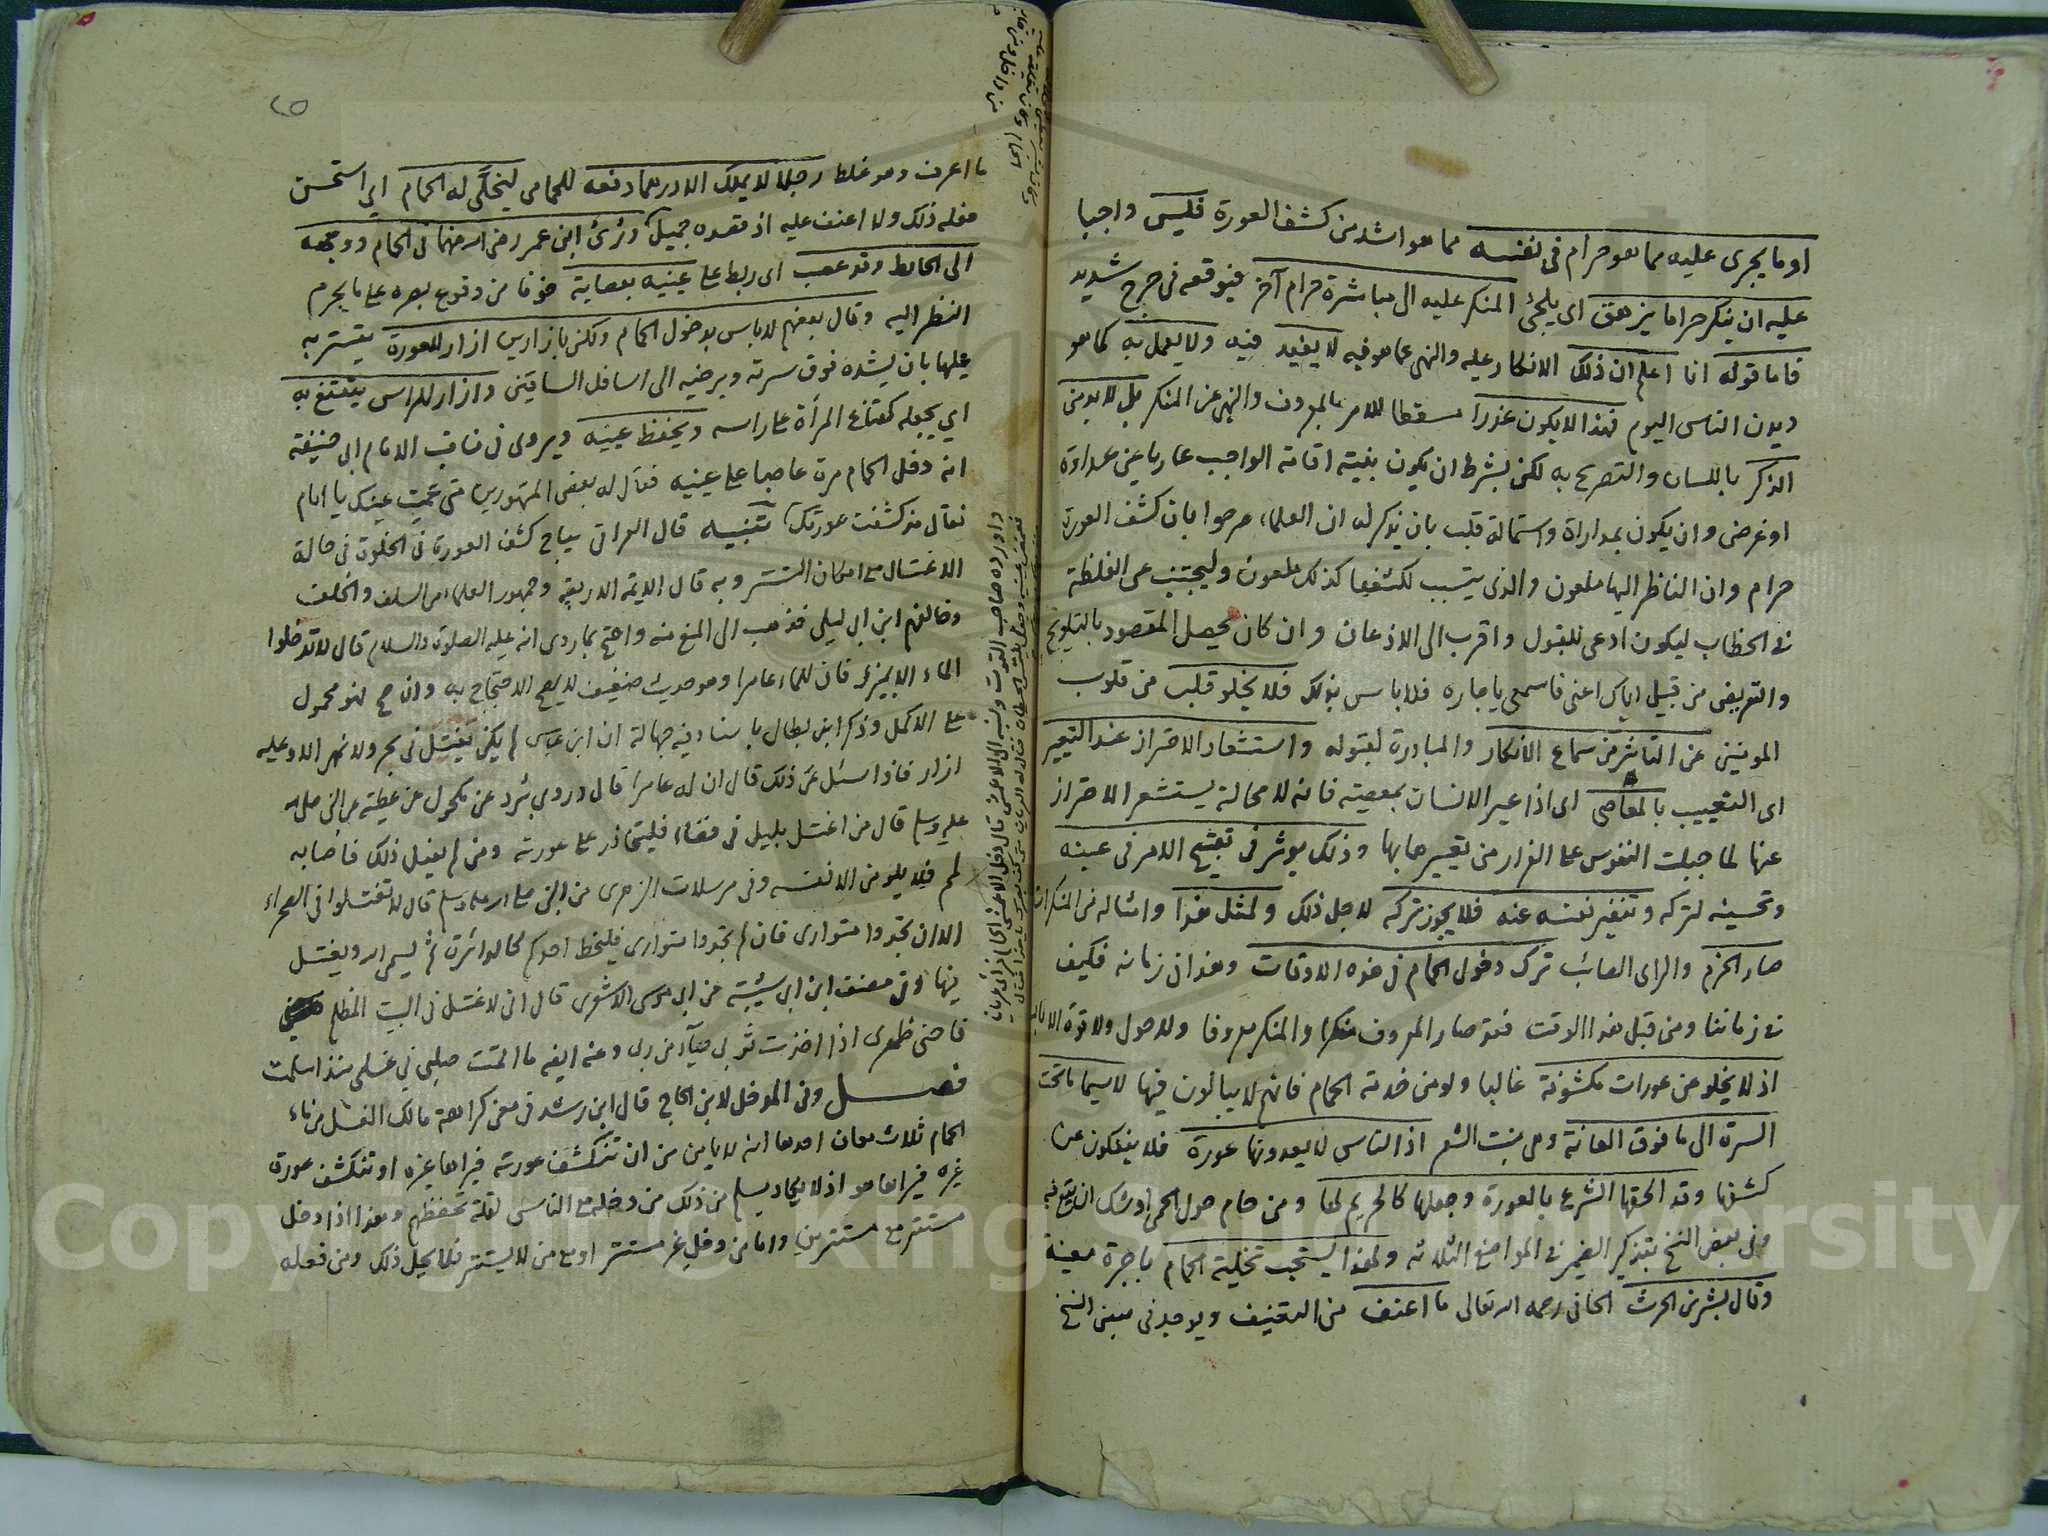 او ما يجرى عليه مما هو حرام فى نفسه مما هو اشد من كشف العورة فليس واجبا
عليه ان ينكر حراما يزهق اى يلجئ المنكر عليه الى مباشرة حرام آخر فيوقعه فى حرج شديد
فاما قوله انا اعلم ان ذلك الانكار عليه والنهى عما هو فيه لا يفيد فيه ولا يعمل به كما هو
ديدن الناس اليوم فهذا لا يكون عذرا مسقطا للامر بالمعروف والنهى عن المنكر بل لا بد من
الذكر باللسان والتصريح به لكن بشرط ان يكون بنية اقامة الواجب عاريا عن عداوة
او غرض وان يكون بمداراة واستمالة قلب بان يذكر له ان العلماء صرحوا بان كشف العورة
حرام وان الناظر اليها ملعون والذى يتسبب لكشفها كذلك ملعون وليجتنب عن الغلظة
فى الخطاب ليكون ادعى للقبول واقرب الى الاذعان وان كان يحصل المقصود بالتلويح
والتعريض من قبيل اياك اعنى فاسمعى يا جاره فلا باس بذلك فلا يخلو قلب من قلوب
المومنين عن التاثر من سماع الانكار والمبادرة لقبوله واستشعار الاحتراز عند التعيير
اى التعييب بالمعاصى اى اذا عير الانسان بمعصيته فانه لا محالة يستشعر الاحتراز
عنها لما جبلت النفوس على الفرار من تعييرها بها وذلك يوثر فى تقبيح الامر فى عينه
وتحسينه لتركه وتنفير نفسه عنه فلا يجوز تركه لاجل ذلك ولمثل هذا وامثاله من المنكرات
صار الحزم والراى الصائب ترك دخول الحمام فى هذه الاوقات وهذا فى زمانه فكيف
فى زماننا ومن قبل هذا الوقت فقد صار المعروف منكرا والمنكر معروفا ولا حول ولا قوة الا بالله
اذ لا يخلو عن عورات مكشوفة غالبا ولو من خدمة الحمام فانهم لا يبالون فيها لا سيما ما تحت
السرة الى ما فوق العانة وهى منبت الشعر اذ الناس لا يعدونها عورة فلا ينفكون عن
كشفها وقد الحقها الشرع بالعورة وجعلها كالحريم لها ومن حام حول الحمى اوشك ان يقع فيه
وفى بعض النسخ بتذكير الضمير فى المواضع الثلاثة ولهذا يستحب تخلية الحمام باجرة معينة
وقال بشر بن الحرث الحافى رحمه الله تعالى ما اعنف من التعنيف ويوجد فى بعض النسخ
ما اعرف وهو غلط رجلا لا يملك الا درهما دفعه للحمامى ليخلى له الحمام اى استحسن
فعله ذلك ولا اعنف عليه اذ مقصده جميل ورئى ابن عمر رضى الله عنهما فى الحمام ووجهه
الى الحائط وقد عصب اى ربط على عينيه بعصابة خوفا من وقوع بصره على ما يحرم
النظر اليه وقال بعضهم لا باس بدخول الحمام ولكن بازارين ازار للعورة يتستر به
عليها بان يشده فوق سرته ويرخيه الى اسافل الساقين وازار للراس يتقنع به
اى يجعله كقناع المرأة على راسه ويحفظ عينيه ويروى فى مناقب الامام ابى حنيفة
انه دخل الحمام مرة عاصبا على عينيه فقال له بعض المتهورين متى عميت عينك يا امام
فقال مذ كشفت عورتك تنبيه قال العراقى يباح كشف العورة فى الخلوة فى حالة
الاغتسال مع امكان التستر وبه قال الايمة الاربعة وجمهور العلماء من السلف والخلف
وخالفهم ابن ابى ليلى فذهب الى المنع منه واحتج بما روى انه عليه الصلوة والسلام قال لا تدخلوا
الماء الا بميزر فان للماء عامرا وهو حديث ضعيف لا يصح الاحتجاج به وان صح فهو محمول
على الاكمل وذكر ابن بطال باسناد فيه جهالة ان ابن عباس لم يكن يغتسل فى بحر ولا نهر الا وعليه
ازار فاذا سئل عن ذلك قال ان له عامرا قال وروى برد عن مكحول عن عطية عن النبى صلى الله
عليه وسلم قال من اغتسل بليل فى فضاء فليتحاذر على عورته ومن لم يفعل ذلك فاصابه
لمم فلا يلومن الا نفسه وفى مرسلات الزهرى عن النبى صلى الله عليه وسلم قال لا تغتسلوا فى الصحراء
الا ان تجدوا متوارى فان لم تجدوا متوارى فليخط احدكم كالدائرة ثم ليسمى الله ويغتسل
فيها وفى مصنف ابن ابى شيبة عن ابى موسى الاشعرى قال انى لاغتسل فى البيت المظلم
فاحنى ظهرى اذا اخذت ثوبى حياء من ربى وعنه ايضه ما اقمت صلبى فى غسلى منذ اسلمت
فصل وفى المدخل لابن الحاج قال ابن رشد فى معنى كراهة مالك الغسل من ماء
الحمام ثلاث معان احدها انه لا يامن من ان تنكشف عورته فيراها غيره او تنكشف عورة
غيره فيراها هو اذ لا يكاد يسلم من ذلك من دخله مع الناس لقلة تحفظهم وهذا اذا دخل
مستتر مع مستترين واما من دخل غير مستتر او مع من لا يستتر فلا يحل ذلك ومن فعله
Copyright © King Saud University